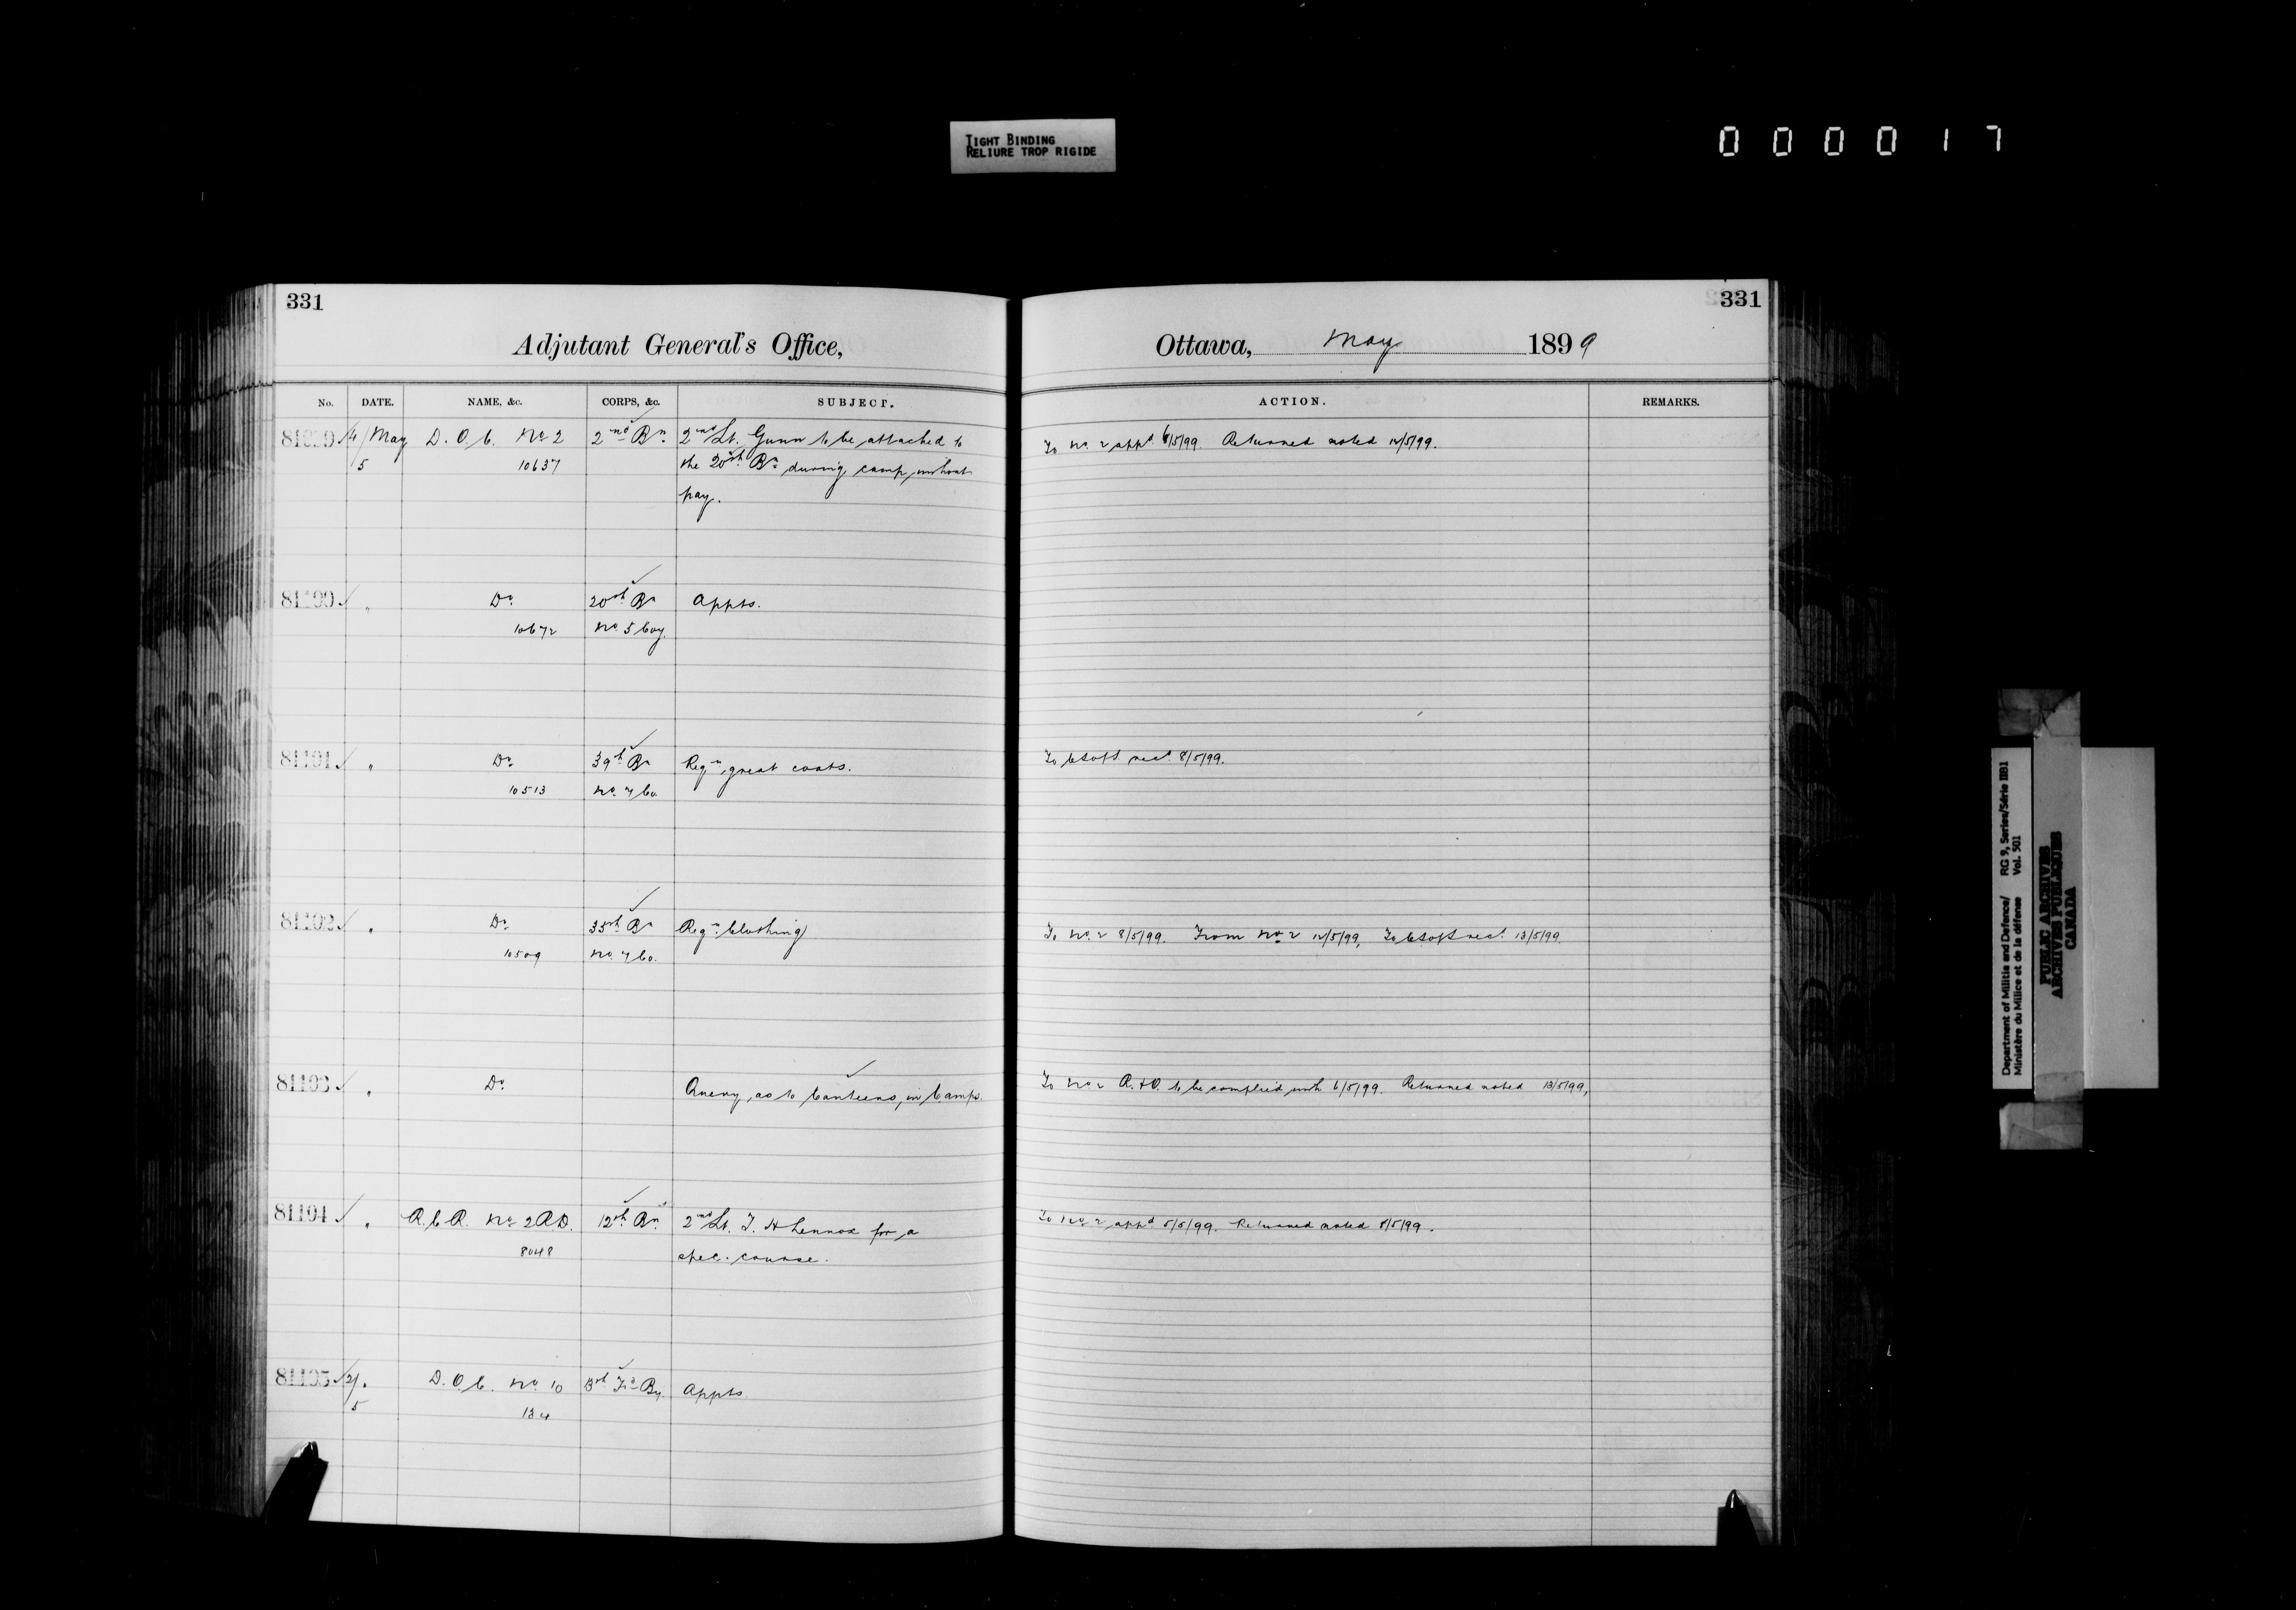 TIGHT BINDING
RELIURE TROP RIGIDE
000017
331
Adjutant General's Office,
No. DATE. NAME, &c. CORPS, &c. SUBJECT.
4/May D.O.C. No 2 2nd Bn. 2nd Lt. Gunn to be attached to
5 10637 the 20th Bn during camp, without
pay.
81100 " Do. 20th Bn Appts.
10672 No. 5 Coy.
81101 " Do. 39th Bn Reqn. great coats.
10513 No. 7 Co.
81102 " Do. 35th Bn Reqn. Clothing
10509 No. 7 Co.
81103 " Do. Query, as to Canteens, in Camps.
81104 " R.C.R. No 2 R.D. 12th Bn. 2nd Lt. T. H Lennox for a
8048 spec. course.
81105 2/ " D.O.C. No. 10 13th Fd. By. Appts.
5 134
331
Ottawa, May 1899
ACTION. REMARKS.
To No. 2 appd. 6/5/99. Returned noted 12/5/99.
To C S of S recd. 8/5/99.
To No. 2 8/5/99. From No. 2 12/5/99, To C S of S recd. 13/5/99.
To No 2 R. & O. to be complied with 6/5/99. Returned noted 13/5/99,
To No 2 appd. 5/5/99. Returned noted 8/5/99.
Department of Militia and Defence/ RG 9, Series/Série IIB1
Ministère du Milice et de la défense Vol. 501
PUBLIC ARCHIVES
ARCHIVES PUBLIQUES
CANADA